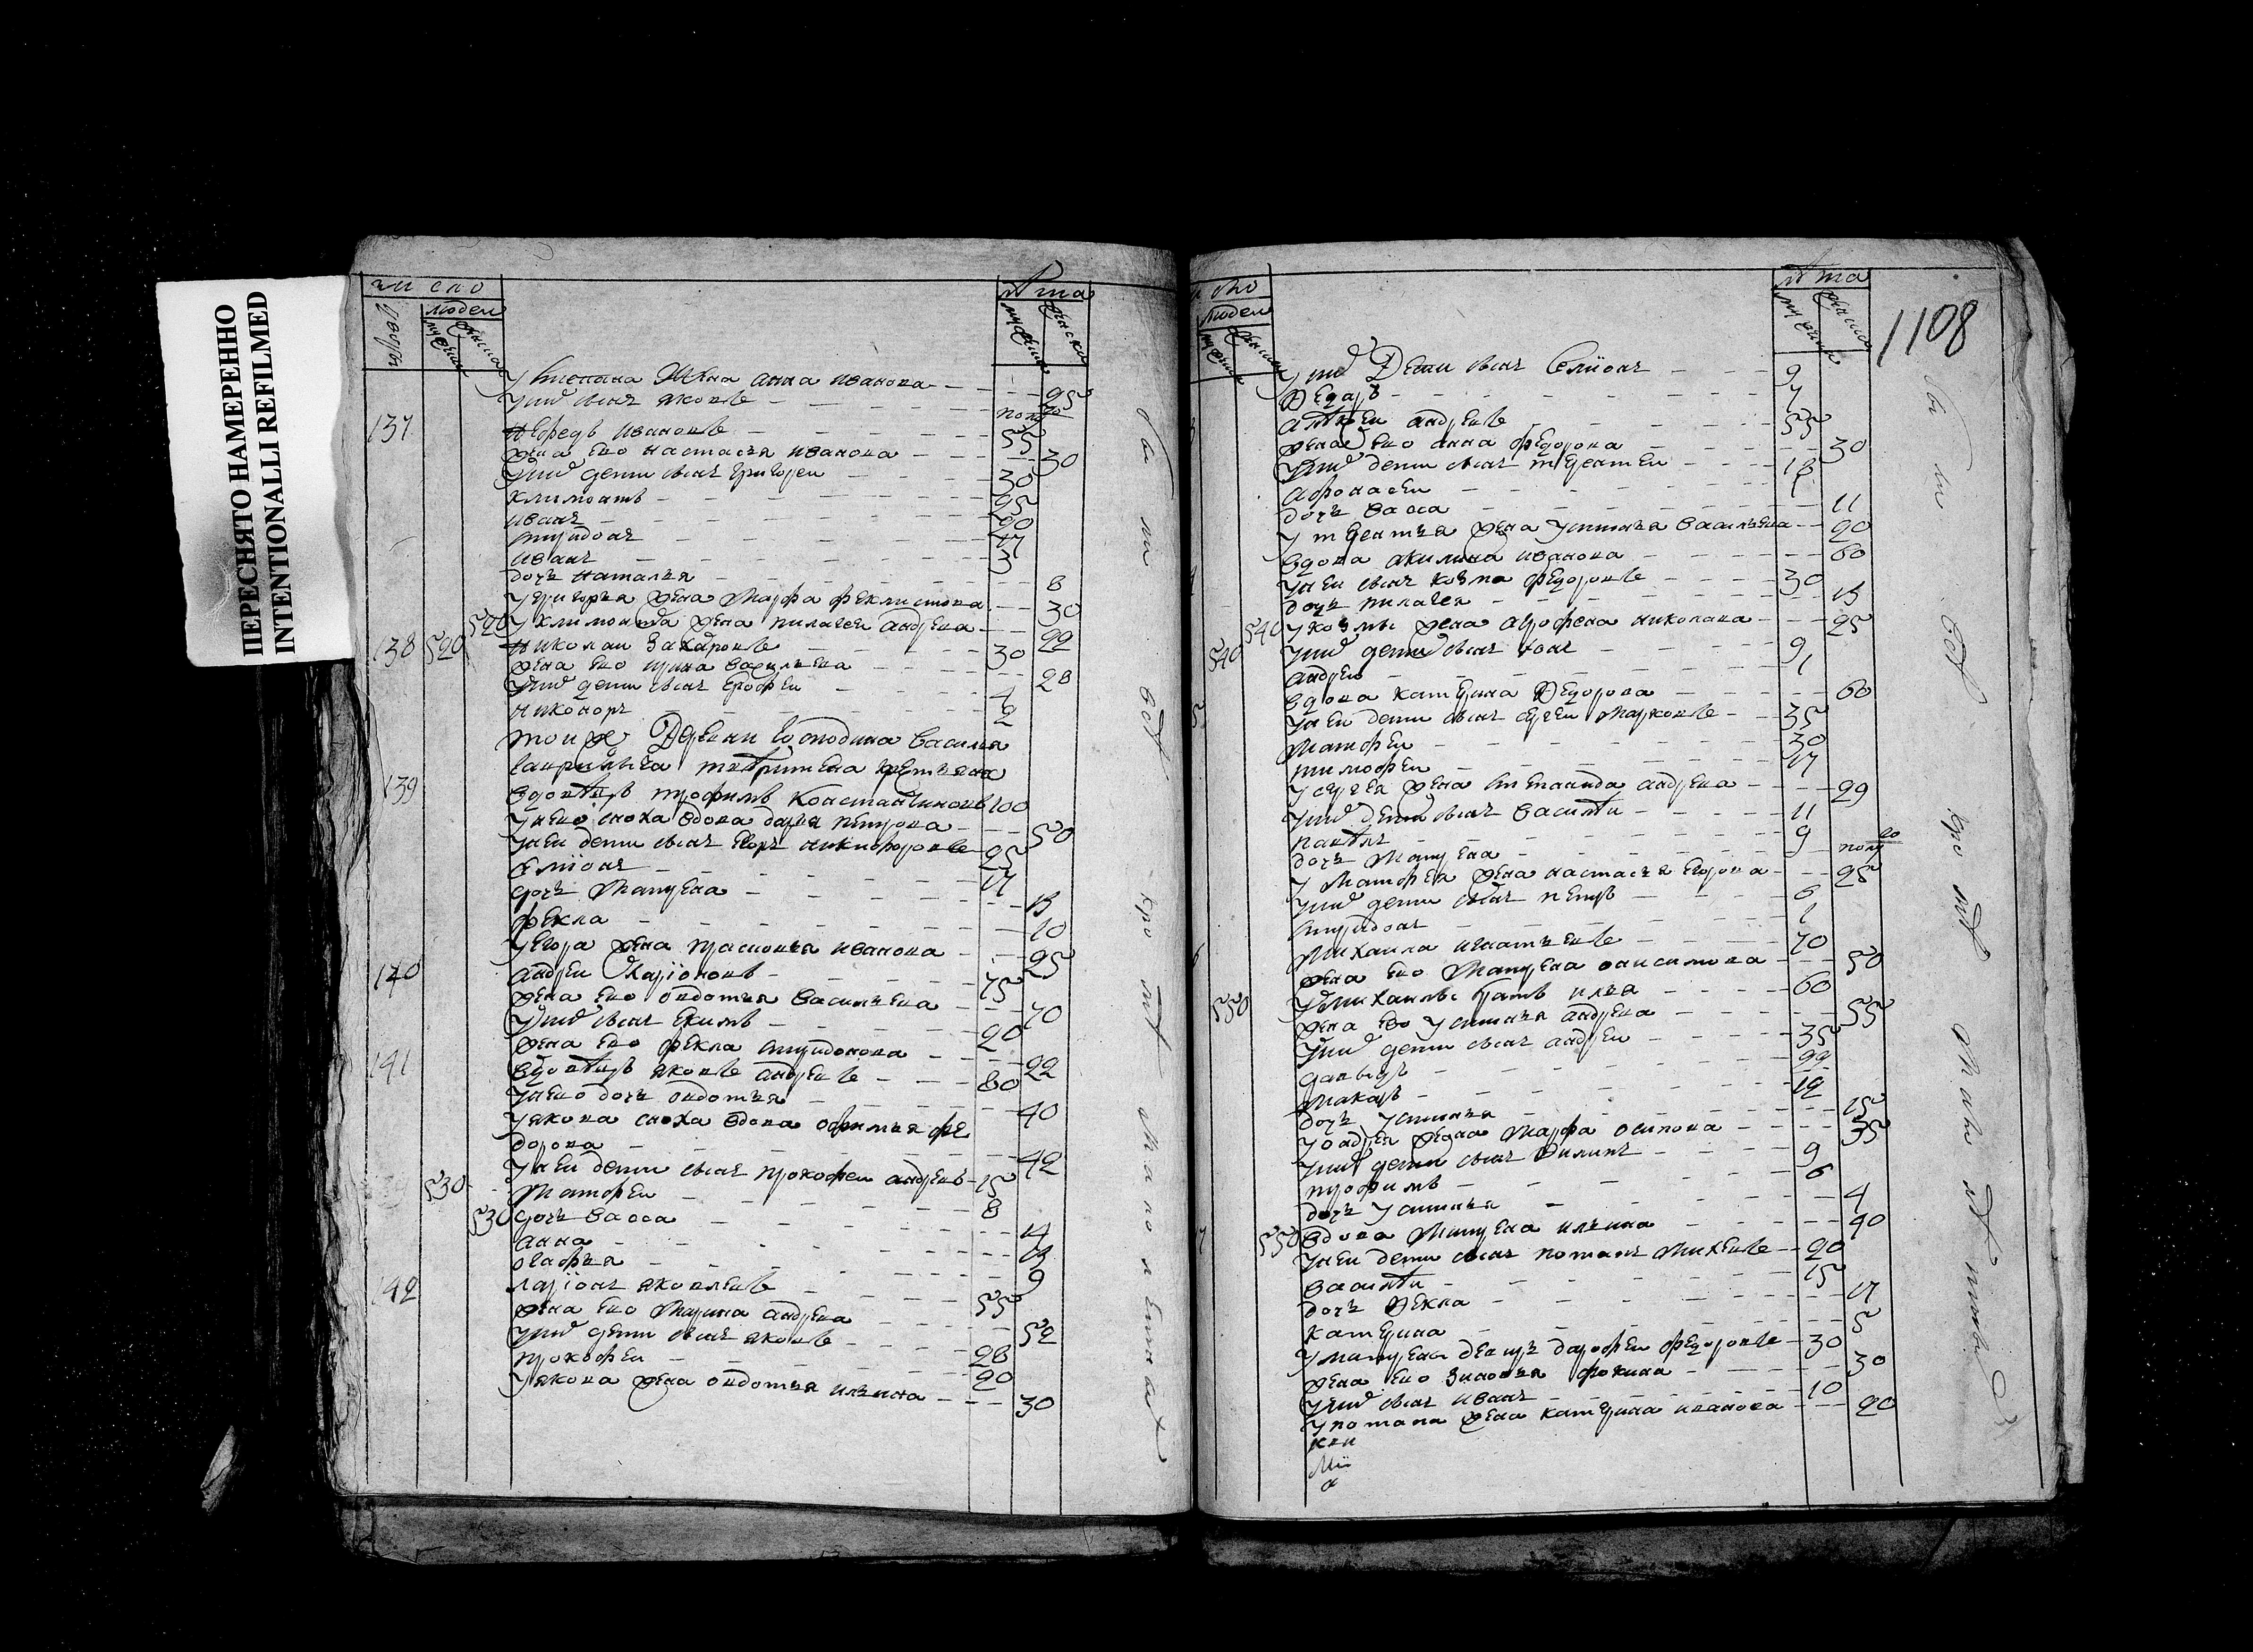 ПЕРЕСНЯТО НАМЕРЕННО
INTENTIONALLI REFILMED
число
людеи
лѣта
дворъ
мужеска
женска
у степана жена анна иванова 25
у нихъ сынъ яковъ полу го
137 нефедъ ивановъ 55
жена ево настасья иванова 30
у нихъ дети сынъ григореи 30
климонтъ 25
иванъ 20
спиридонъ 17
иванъ 3
дочь наталья 8
у григорья жена марфа феклистова 30
520 у климонта жена пилагеи андреева 22
138 520 николаи захаровъ 30
жена ево ирина васильева 28
у нихъ дети сынъ ерофеи 4
никоноръ 2
тоиже деревни господина василья
139 вдовецъ трофимъ константиновъ 100
у нево сноха вдова дарья петрова 50
у неи дети сынъ егоръ никифоровъ 25
семионъ 17
дочь матрена 13
фекла 10
у егора жена прасковья иванова 25
140 андреи ларионовъ 75
жена ево овдотья васильева 70
у нихъ сынъ екимъ 20
жена ево фекла спиридонова 22
141 вдовецъ яковъ андреевъ 80
у нево дочь овдотья 40
у якова сноха вдова офимья фе
дорова 42
у неи дети сынъ прокофеи андреевъ 15
530 матфеи 8
530 дочь васса 14
анна 13
огафья 9
142 ларионъ яковлевъ 55
жена ево марина андреева 52
у нихъ дети сынъ яковъ 28
прокофеи 20
у якова жена овдотья ильина 30
число
людеи
мужеска
женска
лѣта
1108
у нихъ дети сынъ семионъ 9
федаръ 7
алѣксеи андреевъ 55
жена ево анна федорова 30
у нихъ дети сынъ терентеи 18
афонасеи 1
дочь васса 11
у терентья жена устинья васильева 20
вдова акилина иванова 60
у неи сынъ козма федоровъ 30
дочь пилагея 13
540 у козмы жена агрофена николаева 25
540 у нихъ дети сынъ 9
андреи 1
вдова катерина федорова 60
5 у неи дети сынъ сергеи марковъ 35
матфеи 30
тимофеи 17
у сергея жена степанида андреева 29
у нихъ дети сынъ василѣи 11
павѣлъ 9
дочь матрена полу го
у матфея жена настасья егорова 25
у нихъ дети сынъ петръ 6
спиридонъ 2
6 михаила игнатьевъ 70
жена ево матрена онисимова 50
550 у михаилы братъ илья 60
жена ево устинья андреева 55
у нихъ дети сынъ андреи 35
давыдъ 22
макаръ 12
дочь устинья 15
у андреи жена марфа осипова 35
у нихъ дети сынъ филипъ 9
трофимъ 6
дочь устинья 4
7 550 вдова матрена ильина 40
у неи дети сынъ потапъ михеевъ 20
василѣи 15
дочь фекла 17
катерина 5
у матрены деверь дорофеи федоровъ 30
жена ево зиновья фокина 30
у нихъ сынъ иванъ 10
у потапа жена катерина иванова 20